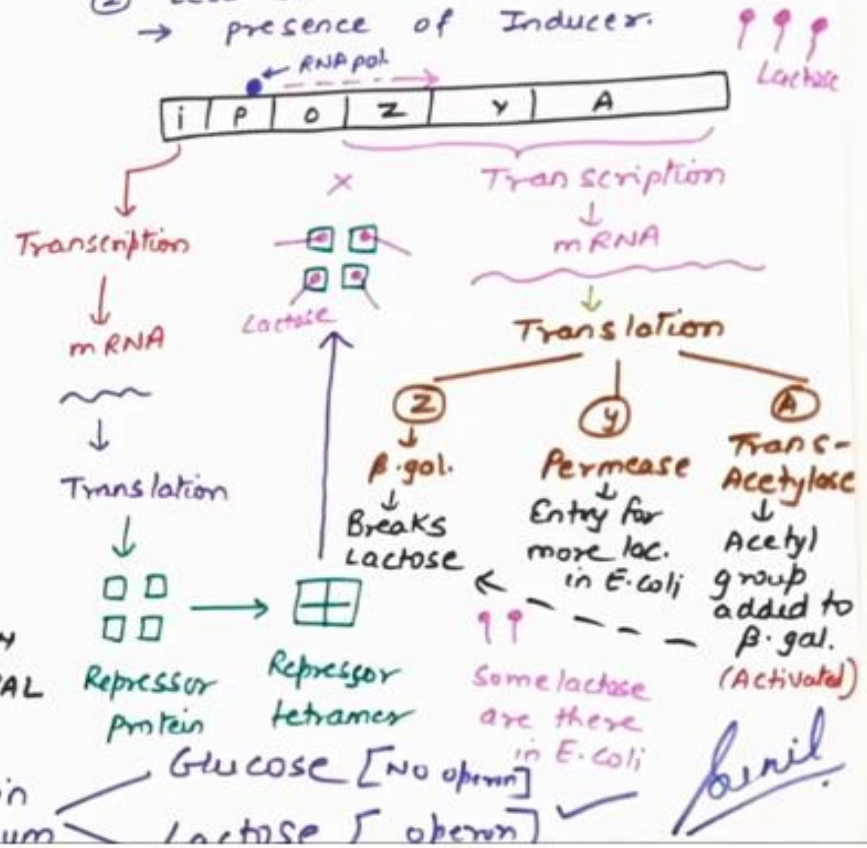 → presence of Inducer.
RNA pol.
Lactose
i P O Z Y A
Transcription
mRNA
Translation
Repressor
Protein
Repressor
tetramer
×
Lactose
Transcription
mRNA
Translation
Z
β.gal.
Breaks
Lactose
y
Permease
Entry for
more lac.
in E.coli
A
Trans-
Acetylase
Acetyl
group
added to
β.gal.
(Activated)
Some lactose
are there
in E.coli
Glucose [No operon]
Lactose [ operon]